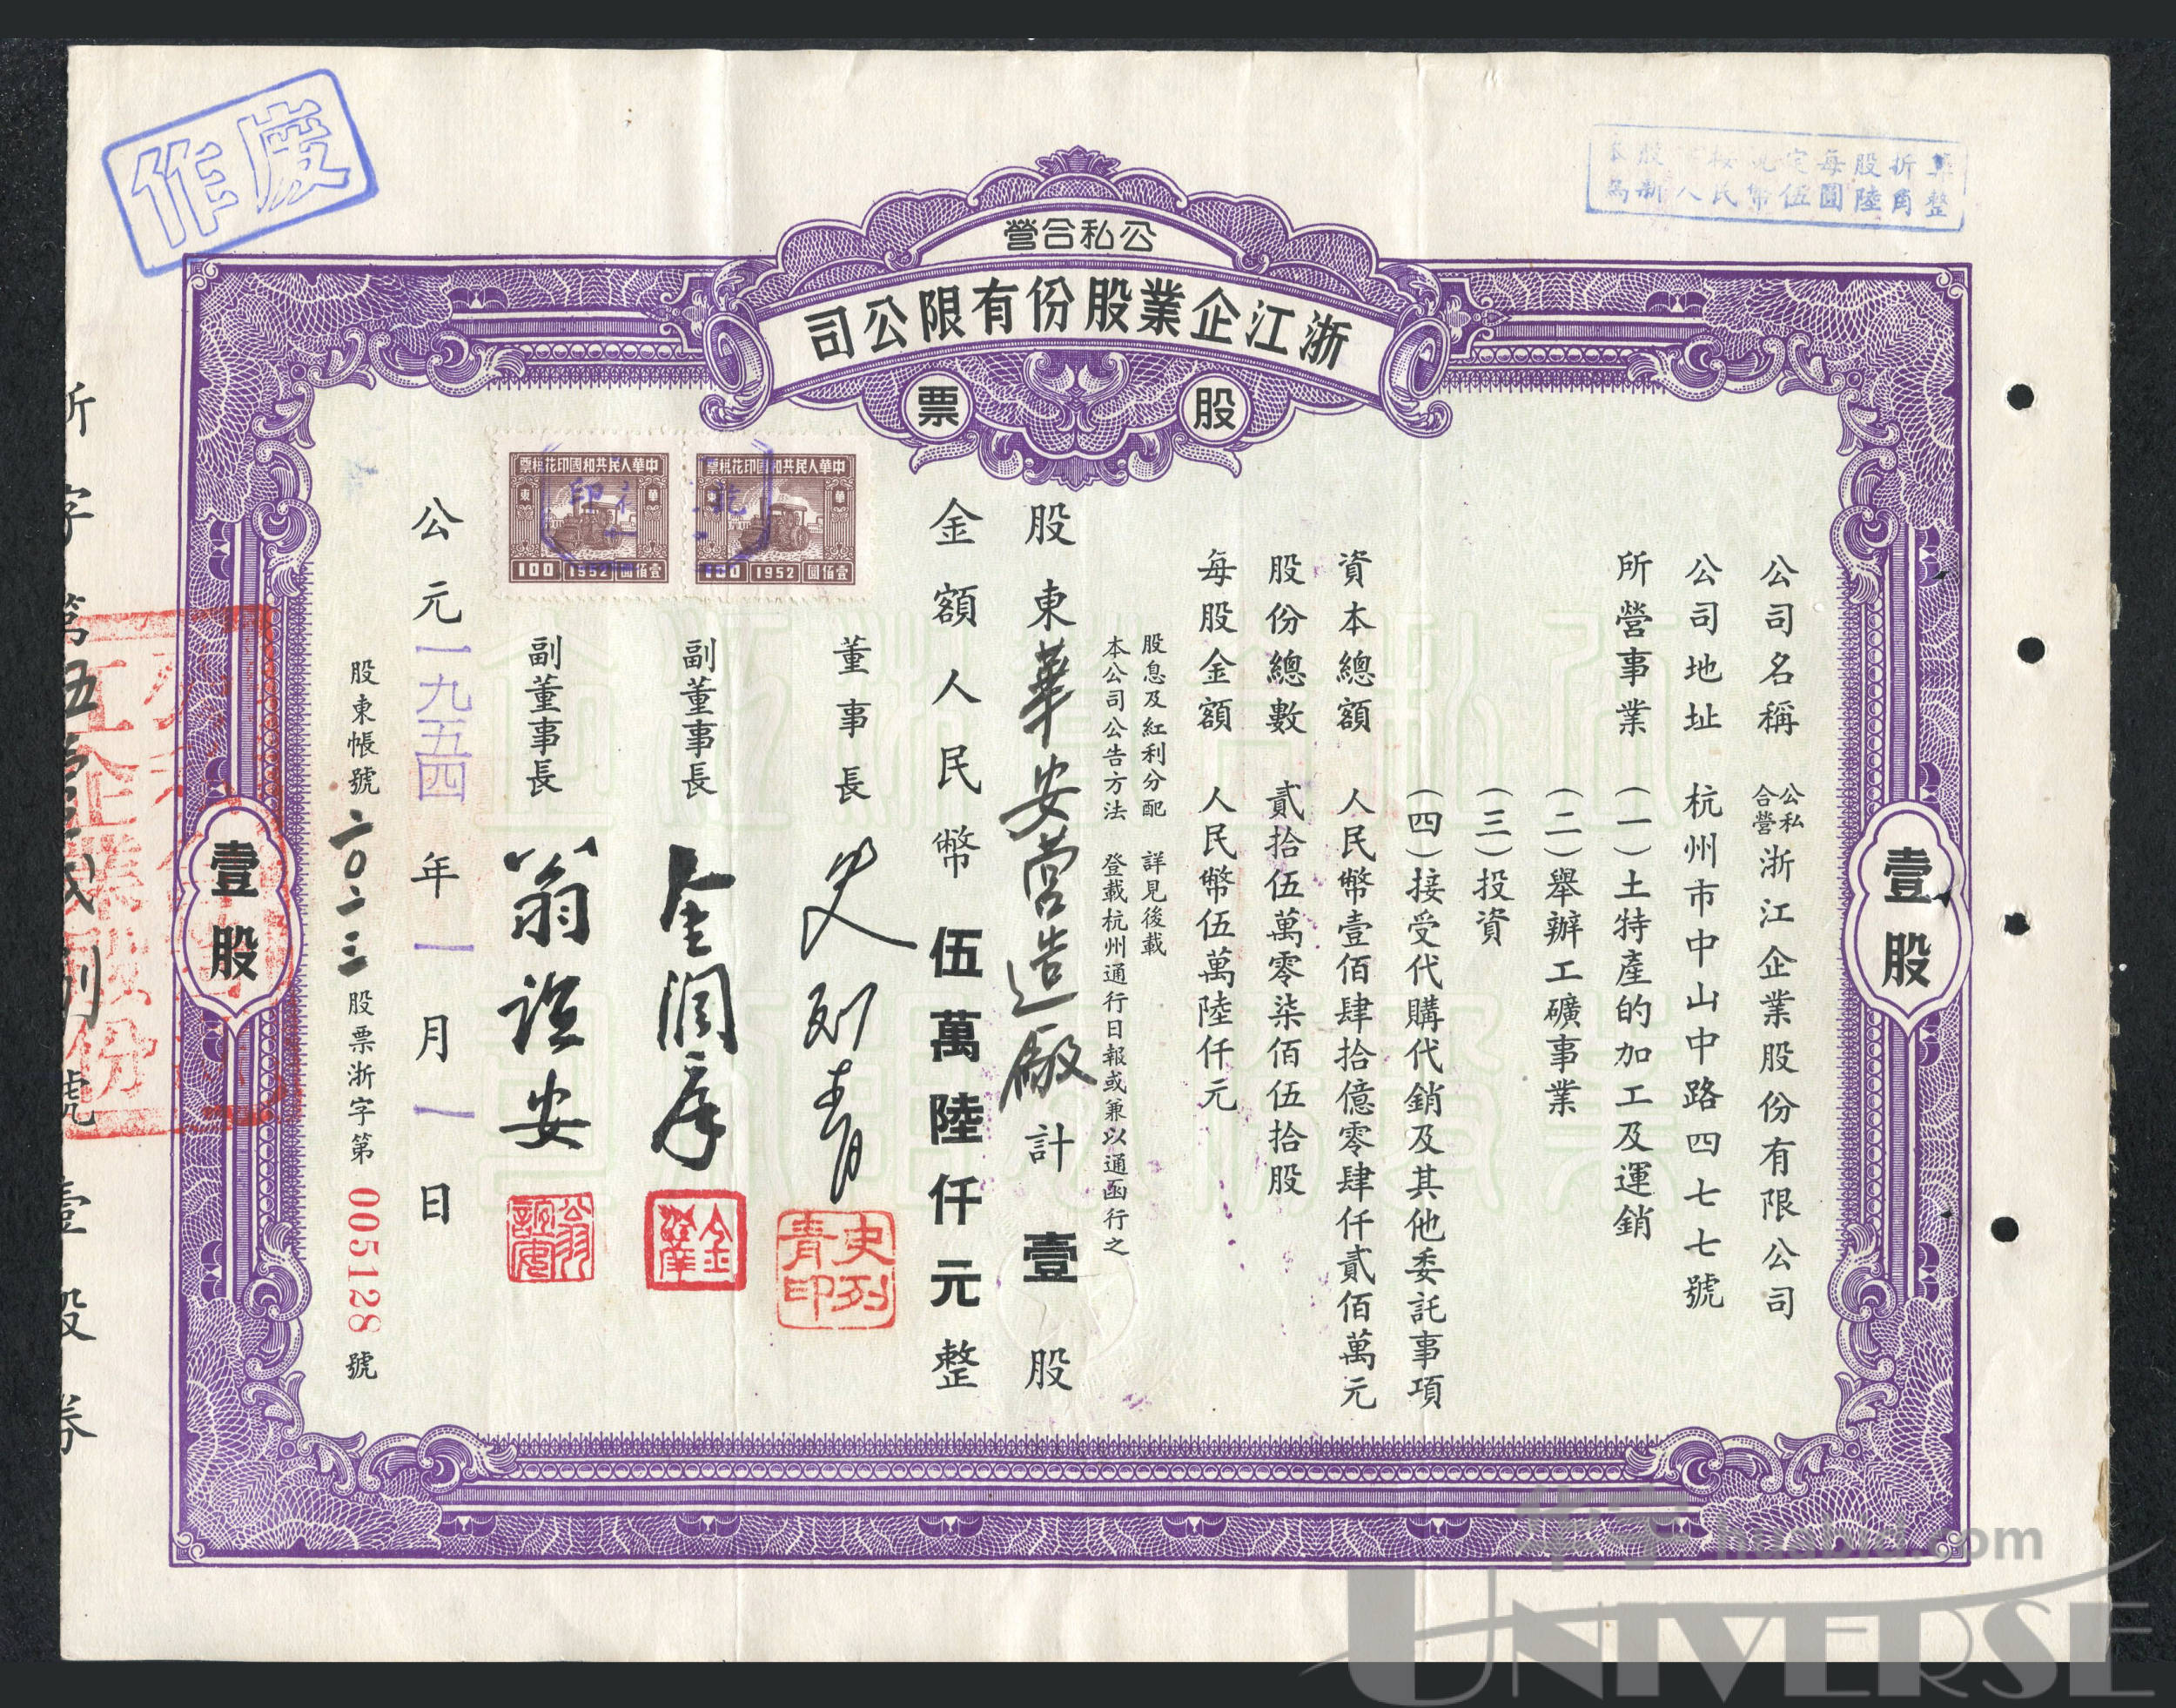 作廢
本股票按規定每股折算
為新人民幣伍圓陸角整
公私合營
浙江企業股份有限公司
股票
壹股
公司名稱 公私合營浙江企業股份有限公司
公司地址 杭州市中山中路四七七號
所營事業 (一)土特產的加工及運銷
(二)舉辦工礦事業
(三)投資
(四)接受代購代銷及其他委託事項
資本總額 人民幣壹佰肆拾億零肆仟貳佰萬元
股份總數 貳拾伍萬零柒佰伍拾股
每股金額 人民幣伍萬陸仟元
股息及紅利分配 詳見後載
本公司公告方法 登載杭州通行日報或兼以通函行之
股東華安营造厰計壹股
金額人民幣伍萬陸仟元整
中華人民共和國印花稅票
華東
壹佰圓 1952 100
中華人民共和國印花稅票
華東
壹佰圓 1952 100
董事長 史列青
史列青印
副董事長 金潤庠
金潤庠
副董事長 翁詒安
翁詒安
公元一九五四年一月一日
股東帳號 二〇二三 股票浙字第 005128 號
壹股
壹股券
華宇 huabid.com
UNIVERSE